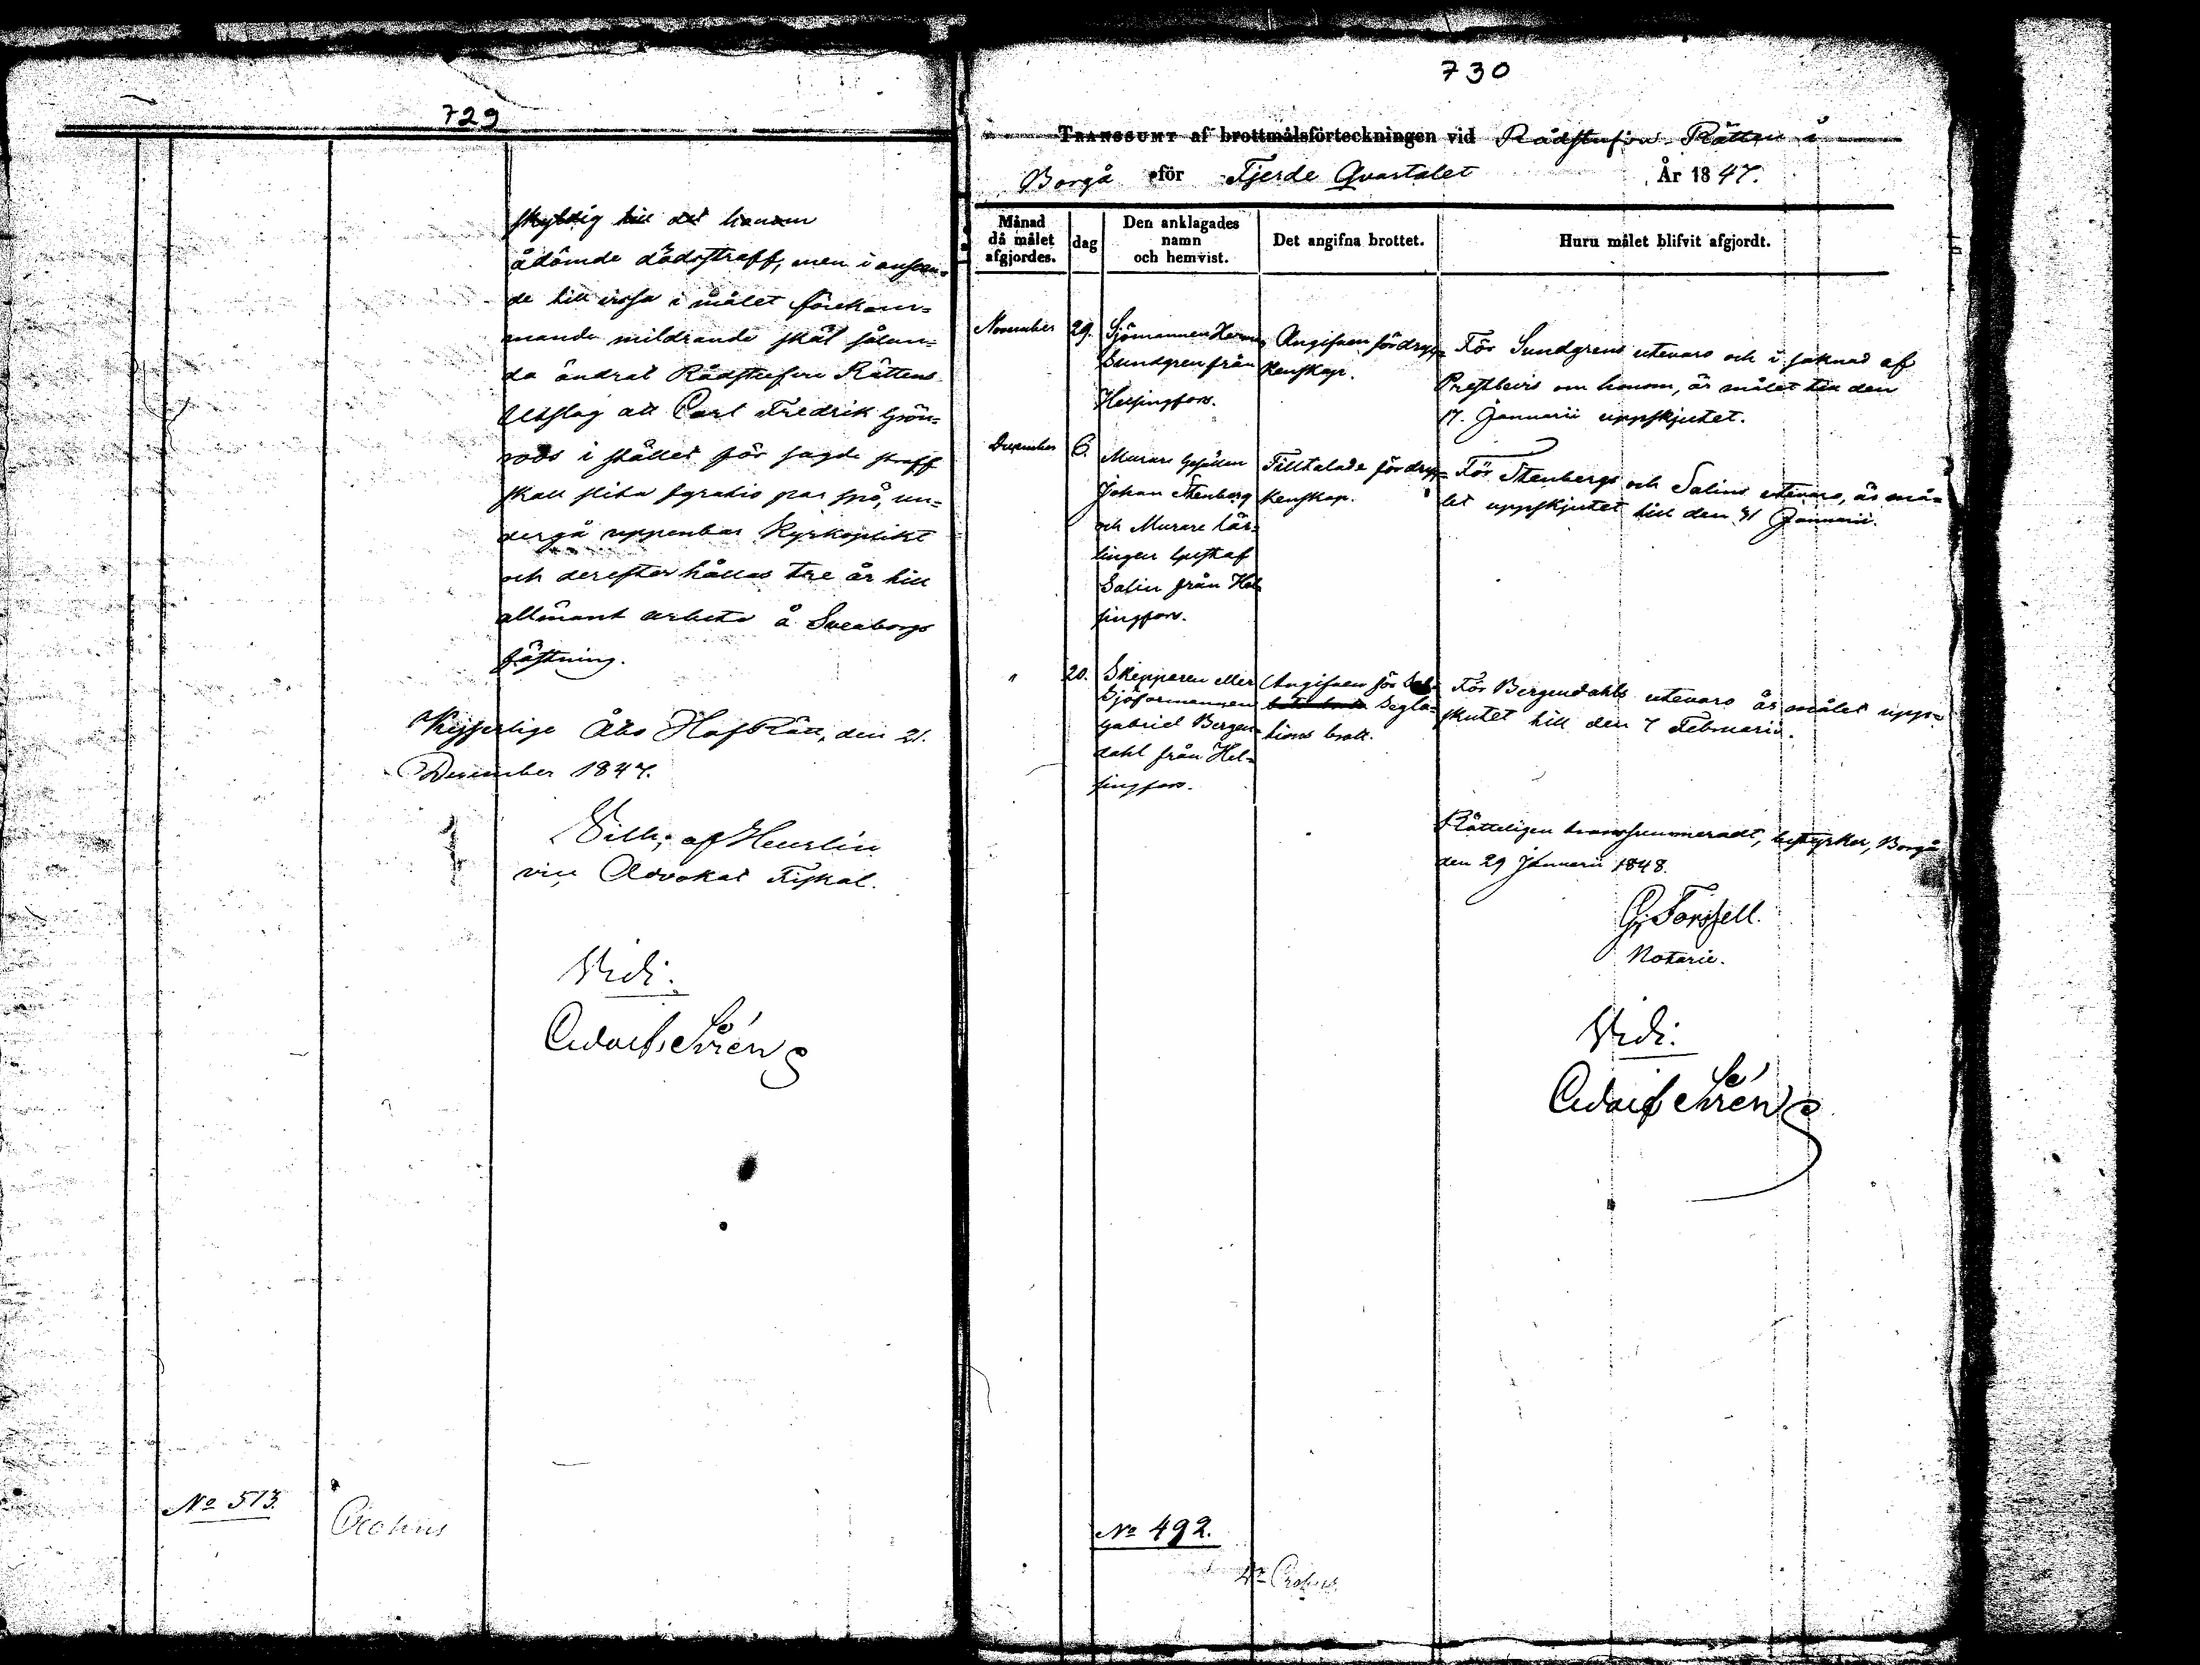 729
skyldig till det honom
ådömde dödsstraff, men i anseen-
de till vissa i målet förekom-
mande mildrande skäl sålun-
da ändrat Rådstufvu Rättens
Utslag att Carl Fredrik Grön-
roos i stället för sagde straff
skall slita fyratio par spö, un-
dergå uppenbar Kyrkoplikt
och derefter hållas tre år till
allmänt arbete å Sveaborgs
fästning.
Kejserlige Åbo HofRätt, den 21.
December 1847.
Vilh; af Heurlin
vice Advokat Fiskal.
Vidi:
No 513.
Crohns
730
TRANSSUMT af brottmålsförteckningen vid Rådstufvu Rätten i
Borgå för Fjerde Qvartalet År 1847.
Månad
då målet
afgjordes.
dag
Den anklagades
namn
och hemvist.
Det angifna brottet.
Huru målet blifvit afgjordt.
November 29. Sjömannen
Sundgren från
Helsingfors.
Angifven för dryc-
kenskap.
För Sundgrens utevaro och i saknad af
Prestbevis om honom, är målet till den
17. Januarii uppskjutet.
December 6. Murare Gesällen
Johan Stenberg
och Murare lär-
lingen Gustaf
Salin från Hel-
singfors.
Tilltalade för dryc-
kenskap.
För Stenbergs och Salins utevaro, är må-
let uppskjutet till den 31 Januarii.
" 20. Skepparen eller
Sjöformannen
Gabriel Bergen-
dahl från Hel-
singfors.
Angifven för
Segla-
tions brott.
För Bergendahls utevaro är målet upp-
skutet till den 7 Februarii.
Rätteligen transsummeradt, bestyrker, Borgå
den 29 Januarii 1848.
G; Forssell.
Notarie.
Vidi:
No 492.
Crohns